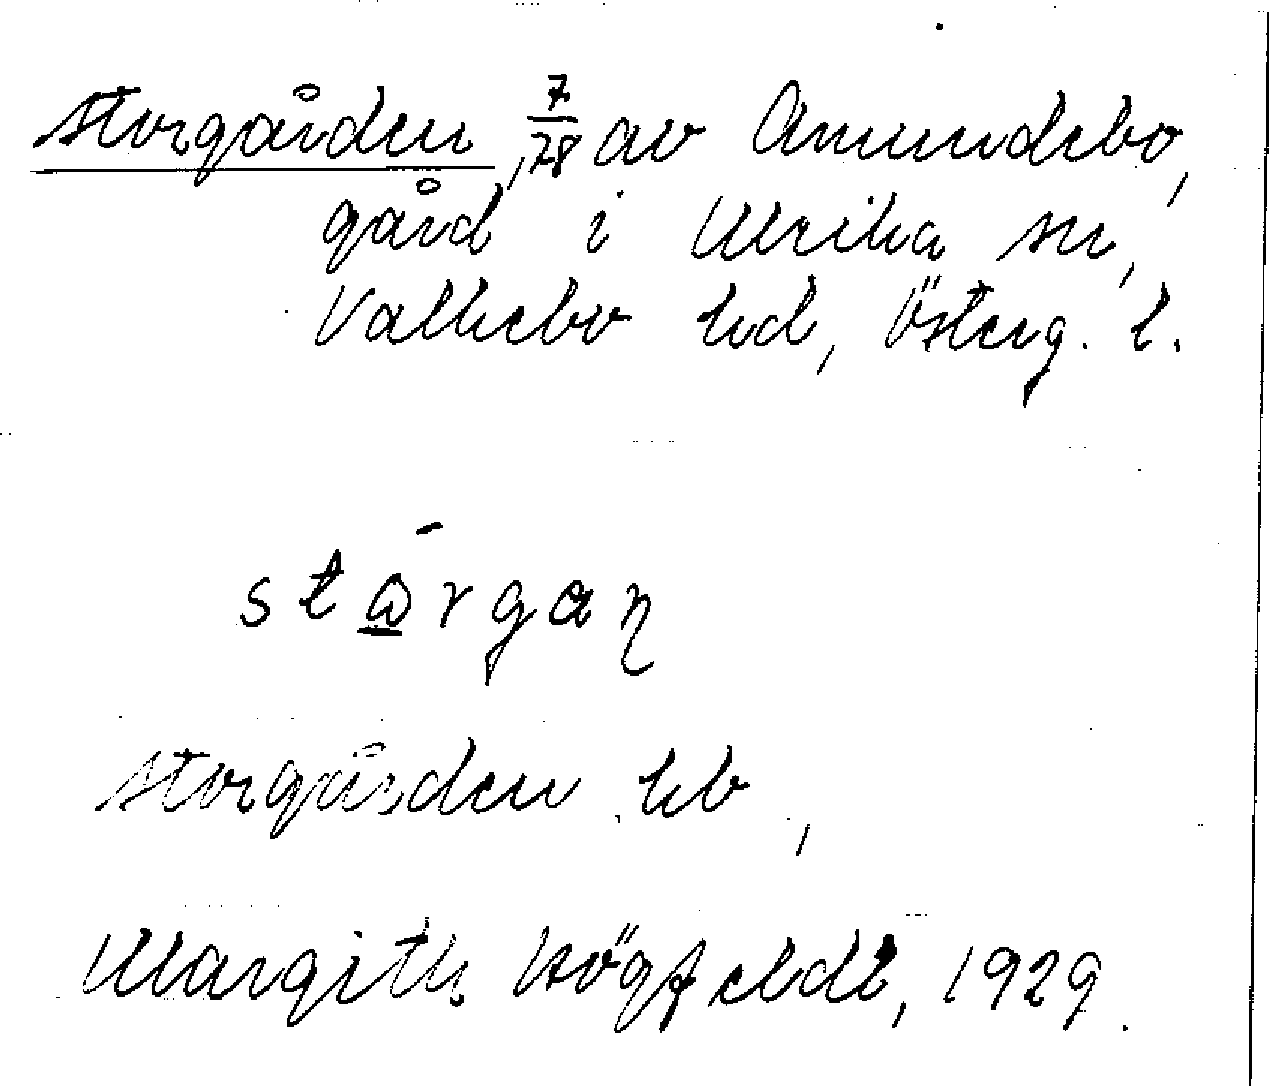 Storgården, 7/28 av Amundebo,
gård i Ulrika sn,
Valkebo hd, Österg. l.
stɷ̄rgaɳ
Storgården, hb,
Margith Högfeldt, 1929.